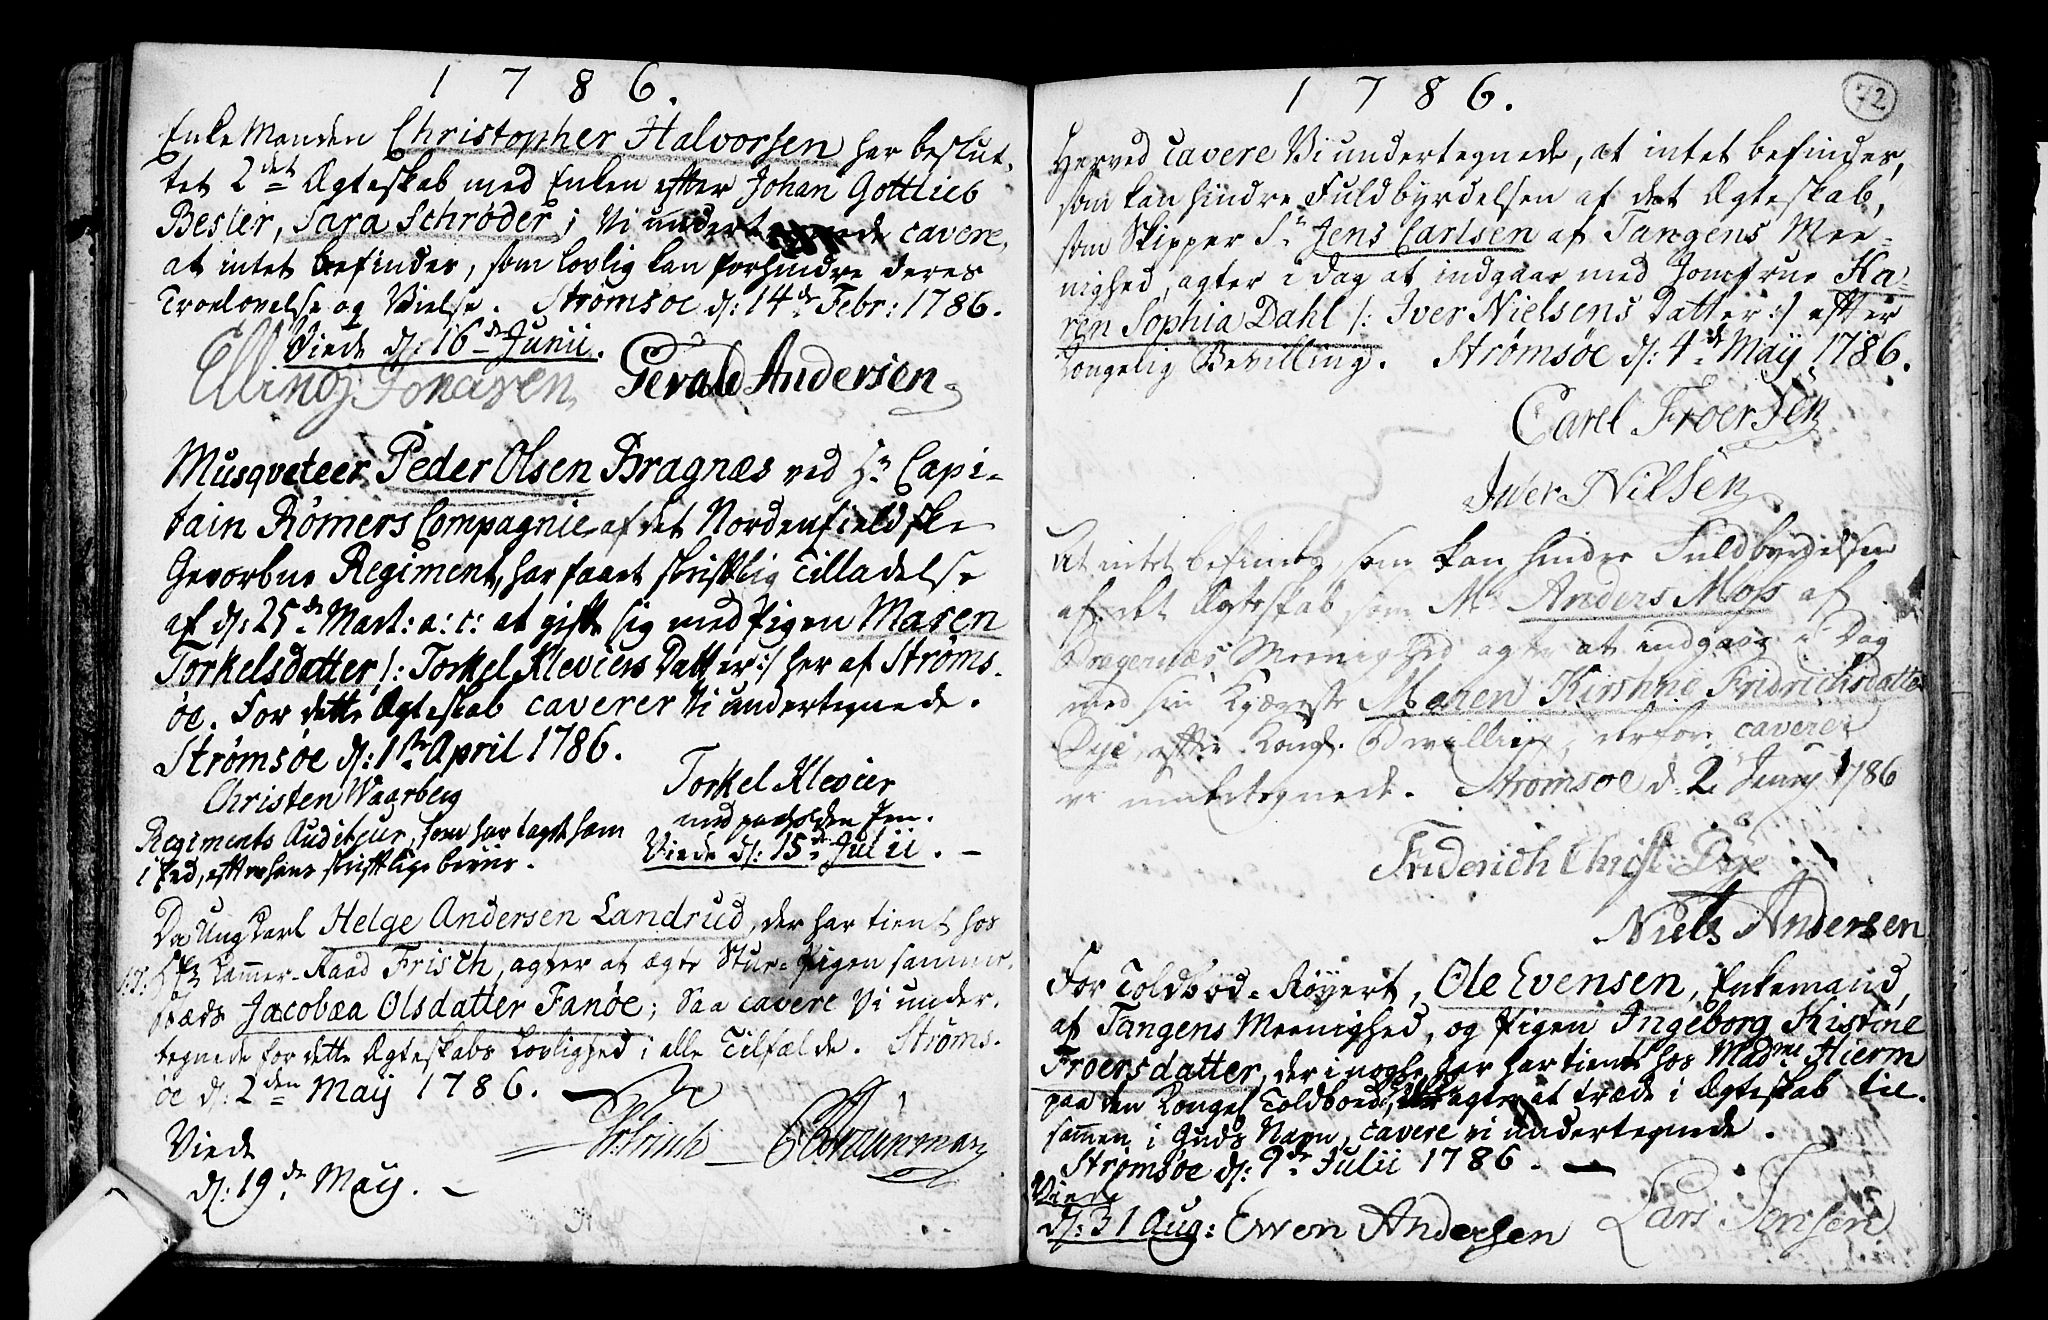 1786.
Enke Manden Christopher Halvorsen har beslut-
tet 2det Ægteskab med Enken efter Johan Gottlieb
Besler, Sara Schrøder; Vi undertegnede cavere,
at intet befindes, som lovlig kan forhindre deres
Troelovelse og Vielse. Strømsøe d: 14de Febr: 1786.
Viede d: 16de Junii.
Elling Jonasen Gerald Andersen
Musqveteer Peder Olsen Bragnæs ved Hr Capi-
tain Rømers Compagnie af det Nordenfieldske
Gevorbne Regiment, har faaet skriftlig Tilladelse
af d: 25de Mart: a: c: at gifte sig med Pigen Maren
Torkelsdatter /: Torkel Kleviers Datter :/ her af Strøms-
øe. For dette Ægteskab caverer Vi undertegnede.
Strømsøe d: 1ste April 1786.
Christen Waarberg
Regiments Auditeur, som har taget ham
i Eed, efter hans skriftlige beviis.
Torkel Klevier
med paaholden Pen.
Viede d: 15de Julii. -
Da Ung Karl Helge Andersen Landrud, der har tient hos
Hr Cammer-Raad Frisch, agter at ægte Stue-Pigen samme-
stæds Jacobæa Olsdatter Fanøe; Saa cavere Vi under-
tegnede for dette Ægteskabs Lovlighed i alle Tilfælde. Strøms-
øe d: 2den Maij 1786. -
Viede
d: 19de Maij. -
1786.
72
Herved cavere Vi undertegnede, at intet befindes,
som kan hindre Fuldbyrdelsen af det Ægteskab,
som Skipper Sr Jens Carlsen af Tangens Mee-
nighed, agter i dag at indgaae med Jomfrue Ka-
ren Sophia Dahl /: Iver Nielsens Datter :/ efter
Kongelig Bevilling. Strømsøe d: 4de Maij 1786.
Carel Froersen
Iwer Nilsen
At intet befindes, som kan hindre Fuldbyrdelsen
af det Ægteskab, som Mr Anders Moss af
Bragernæs Meenighed agter at indgaae i Dag
med sin Kjæreste Maren Kirstine Fridrichsdatter
Dye, efter Kongl. Bevilling, derfor caverer
vi undertegnede. Strømsøe d. 2 Junij 1786
Friderich Christ: Dye
Niels Andersen
For Toldbod-Røyert, Ole Evensen, Enkemand,
af Tangens Meenighed, og Pigen Ingeborg Kistine
Froersdatter, der i nogle Aar har tient hos Madme Hierm
paa den Kongel Toldboed, agter at træde i Ægteskab til-
sammen i Guds Navn, cavere vi undertegnede.
Strømsøe d: 9de Julii 1786. -
Viede
d: 31 Aug: Ewen Andersen Lars Jensen